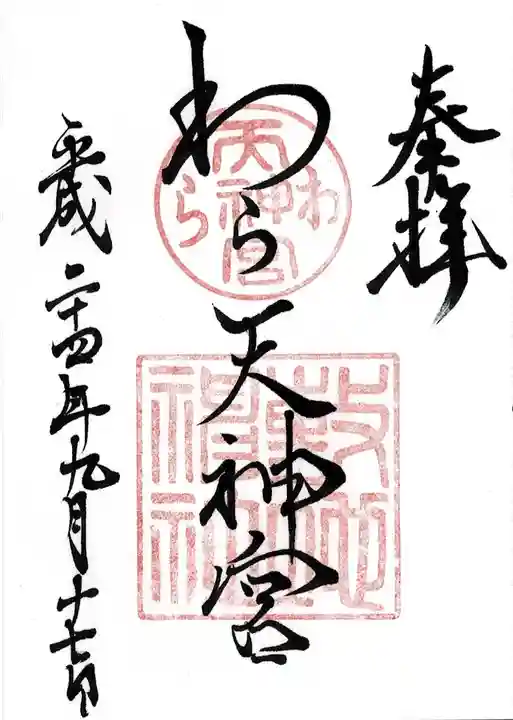 奉拝
わら天神宮
平成二十四年九月十七日
わら天神宮
敷地神社